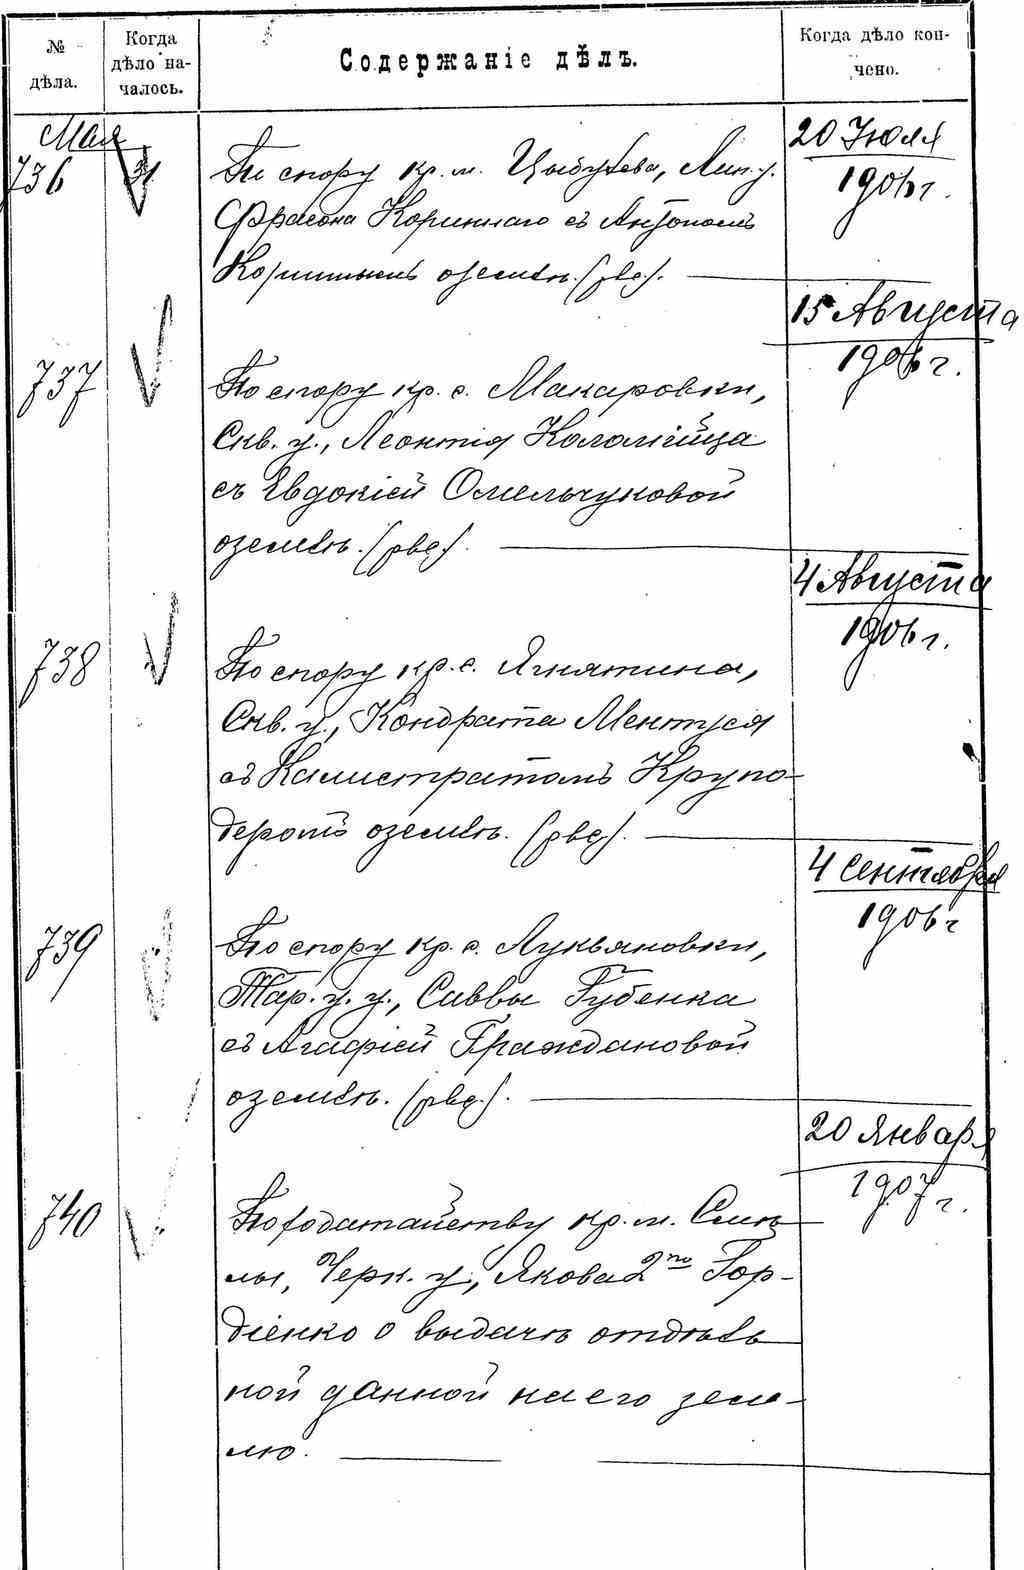 № дѣла.
Когда дѣло на-
чалось.
Содержаніе дѣлъ.
Когда дѣло кон-
чено.
Мая
736
31
По спору кр. м. Цыбулева, Лип. у.
Коринного съ Антономъ
о землѣ. (рвд).
20 Іюля
1906 г.
737
По спору кр. с. Макаровки,
Скв. у., Леонтія Коломійца
съ Евдокіей Омельчуковой
о землѣ. (рвд).
15 Августа
1906 г.
738
По спору кр. с. Ягнятина,
Скв. у., Кондрата Ментуся
съ Калистратомъ Крупо-
деромъ о землѣ. (рвд).
4 Августа
1906 г.
739
По спору кр. с. Лукьяновки,
Тар. у. у., Саввы Губенка
съ Агафіей Граждановой
о землѣ. (рвд).
4 Сентября
1906 г
740
По ходатайству кр. м. Смѣ
лы, Черк. у., Якова 2го Гор-
діенко о выдачѣ отдѣль
ной данной на его зем-
лю.
20 Января
1907 г.